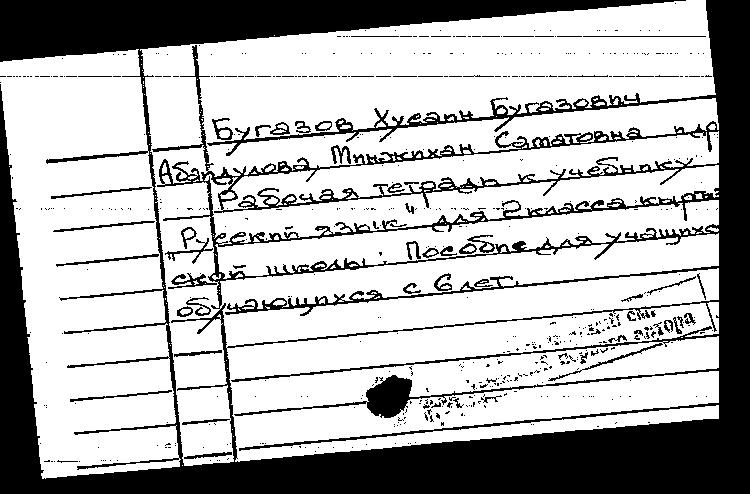 Бугазов, Хусаин Бугазович
Абайдулова, Минжихан Саматовна и др
Рабочая тетрадь к учебнику
"Русский язык" для 2 класса кыргыз
ской школы: Пособие для учащихс
обучающихся с 6 лет.
первого автора